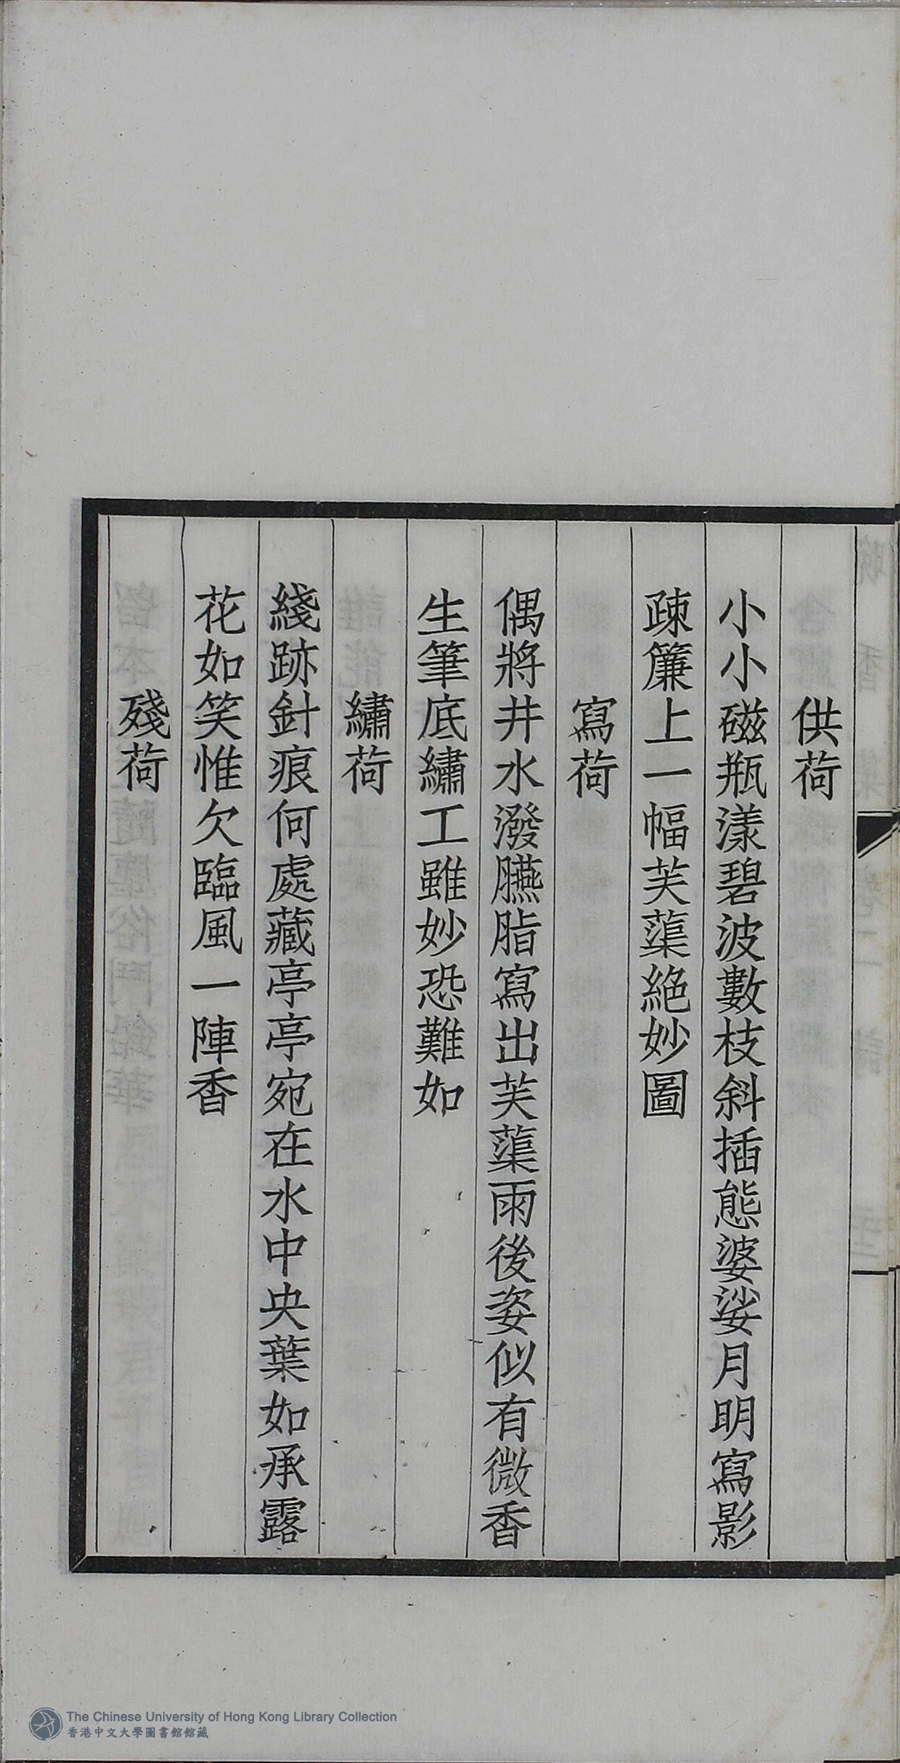 供荷
小小磁瓶漾碧波數枝斜插態婆娑月明寫影
疎簾上一幅芙蕖絕妙圖
寫荷
偶將井水潑臙脂寫出芙蕖雨後姿似有微香
生筆底繡工雖妙恐難如
繡荷
綫跡針痕何處藏亭亭宛在水中央葉如承露
花如笑惟欠臨風一陣香
殘荷
The Chinese University of Hong Kong Library Collection
香港中文大學圖書館館藏